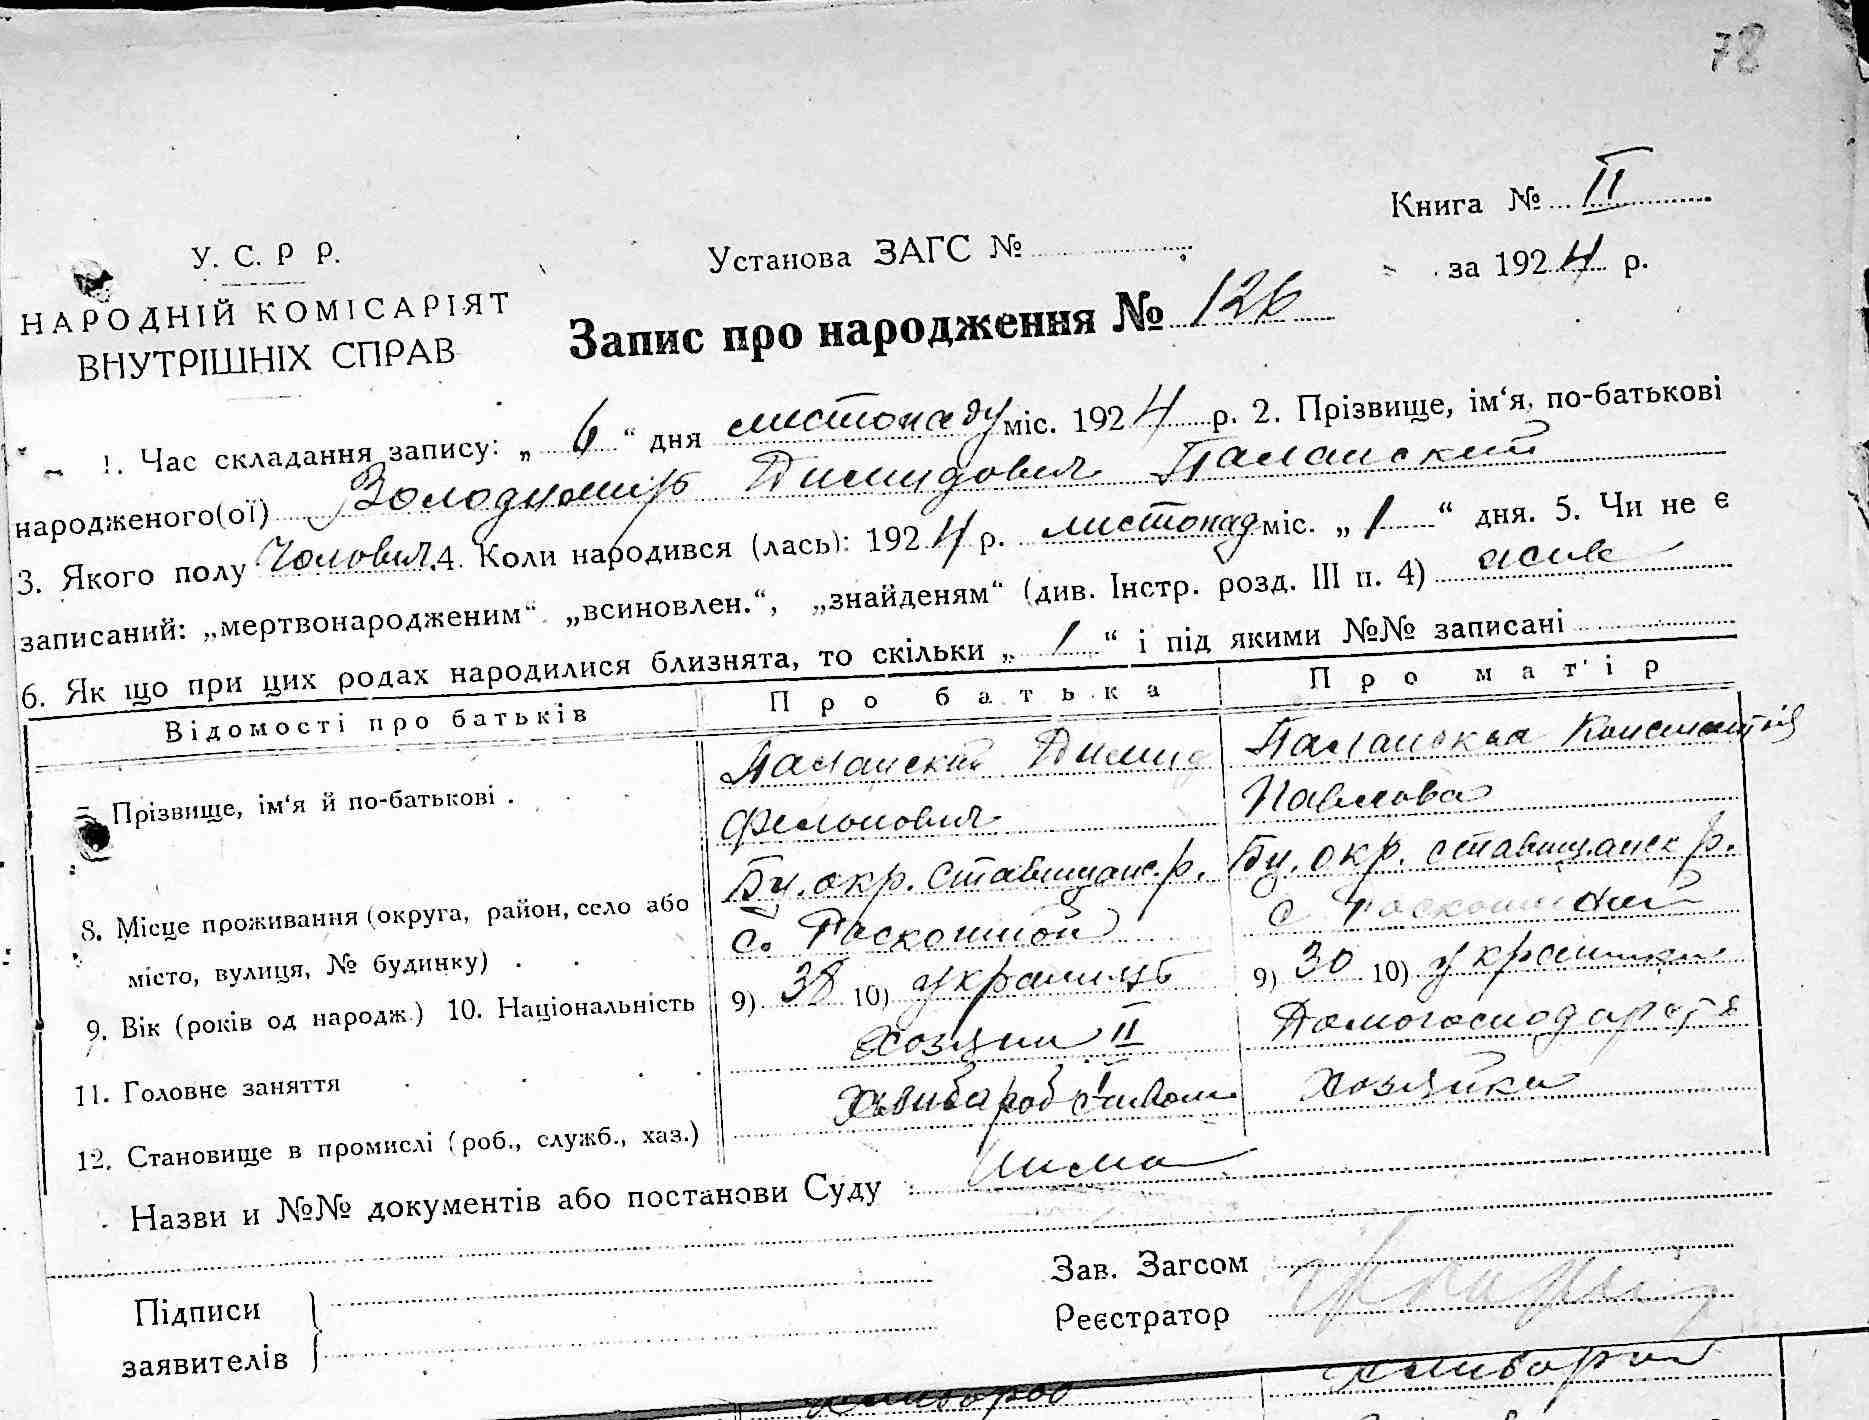 78
Книга № II
У. С. Р Р.
Установа ЗАГС №
за 1924 р.
НАРОДНІЙ КОМІСАРІЯТ
ВНУТРІШНІХ СПРАВ
Запис про народження № 126
1. Час складання запису: „ 6 “ дня листопаду міс. 1924 р. 2. Прізвище, ім‘я, по-батькові
народженого(ої) Володимиръ Димидович Паланский
3. Якого полу Чоловіч. 4. Коли народився (лась): 1924 р. листопад міс. „ 1 “ дня. 5. Чи не є
записаний: „мертвонародженим“ „всиновлен.“, „знайденям“ (див. Інстр. розд. III п. 4) живе
6. Як що при цих родах народилися близнята, то скільки „ 1 “ і під якими №№ записані
Відомості про батьків Про батька Про мат'ір
Паланский Димид Паланская
Прізвище, ім‘я й по-батькові .
Филонович Павлова
Бц. окр. Ставищанс. р. Бц. окр. ставищанск р.
8. Місце проживання (округа, район, село або
с. Раскошной с
місто, вулиця, № будинку) .
9) 38 10) украинць 9) 30 10) украинка
9. Вік (років од народж.) 10. Національність
хозяин II Домогосподарст
11. Головне заняття
хозяйка
12. Становище в промислі (роб., служб., хаз.)
Назви и №№ документів або постанови Суду : нима
Зав. Загсом
Підписи
Реєстратор
заявителів